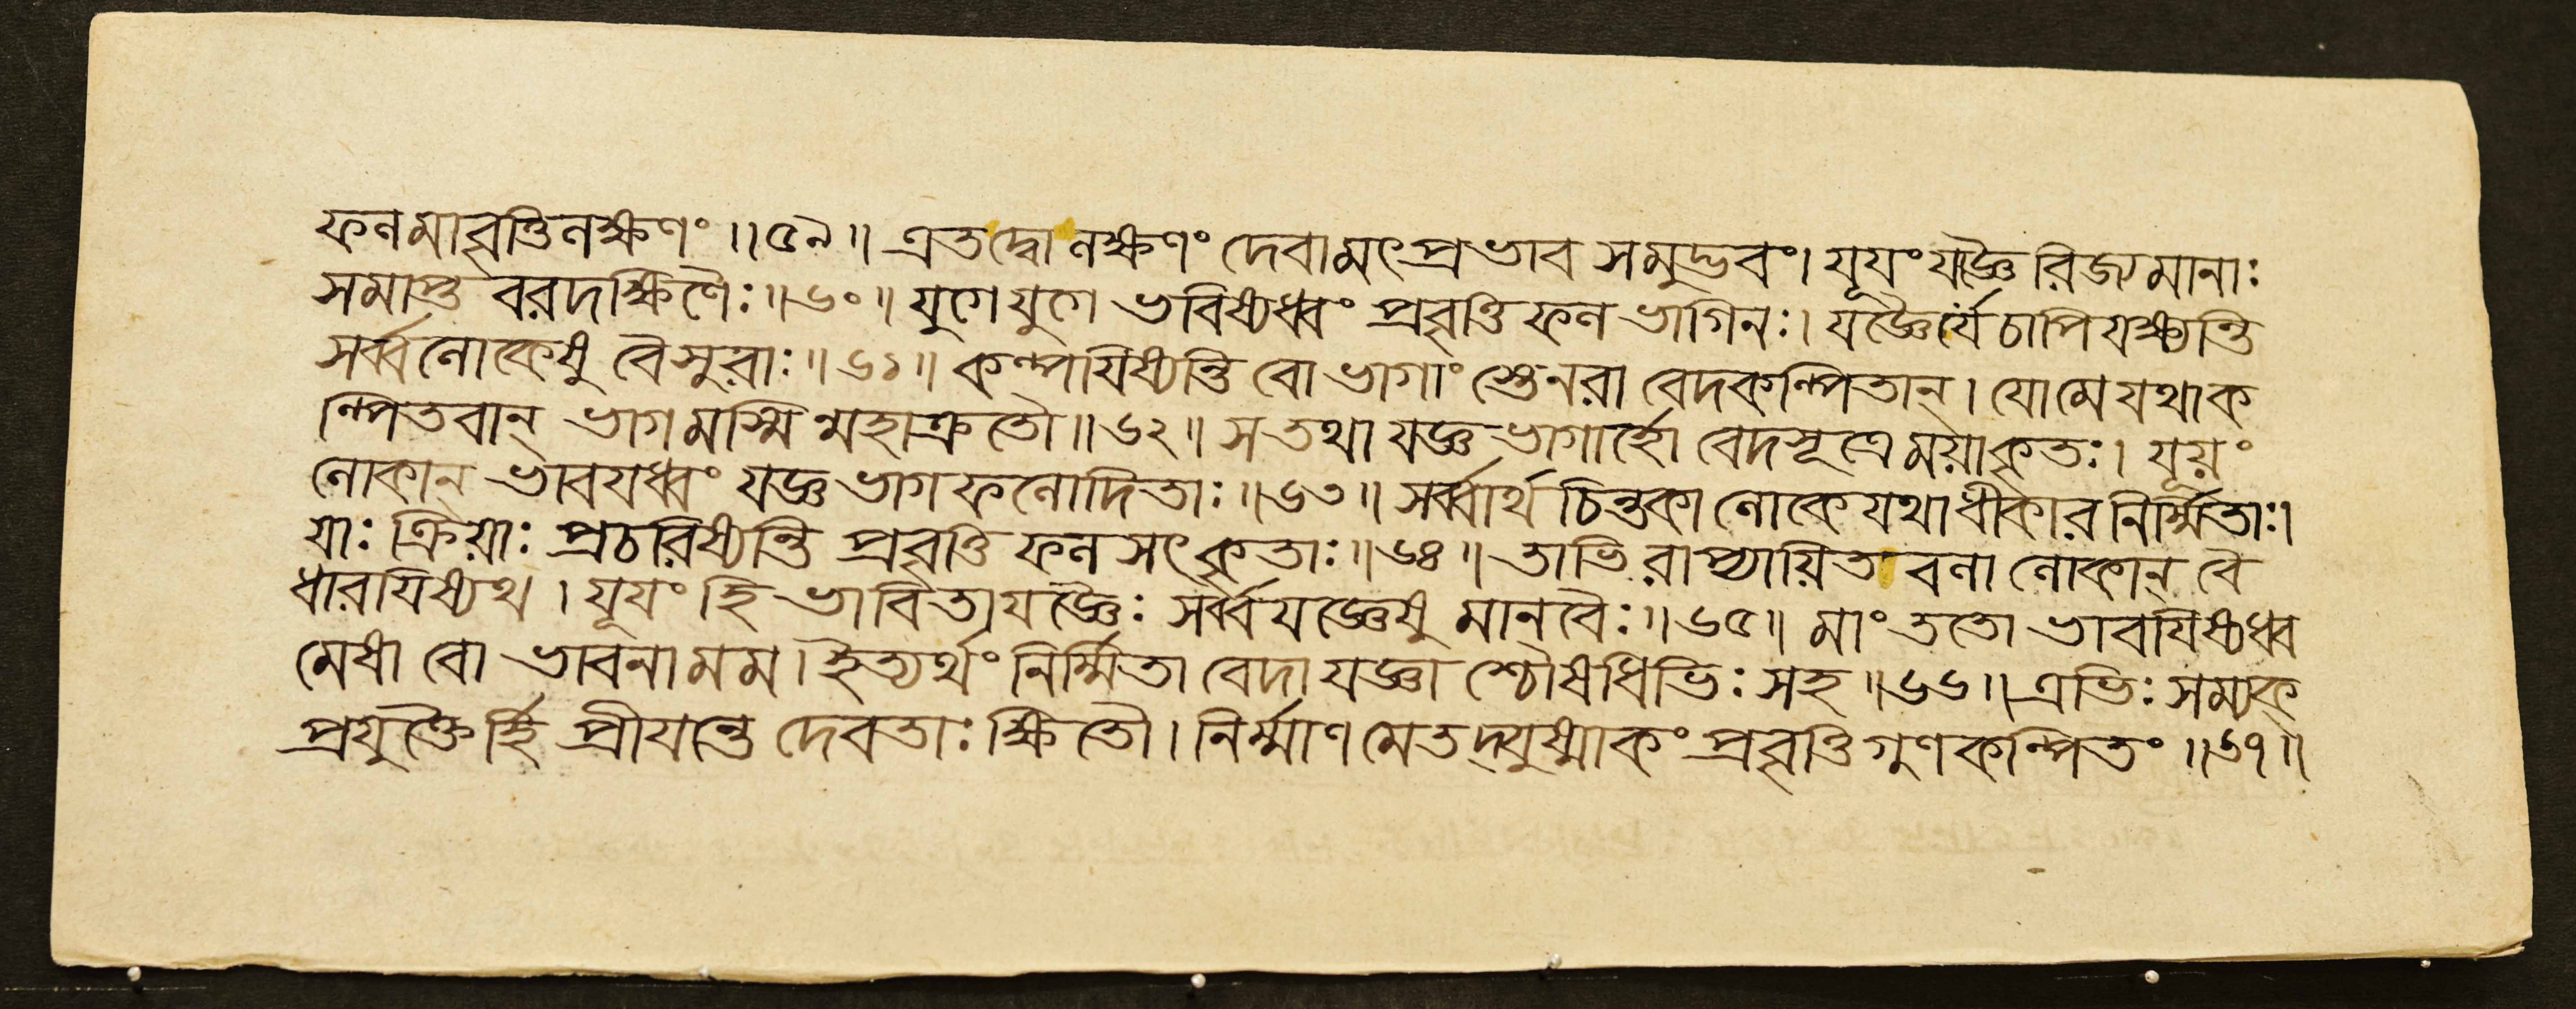 ফলমাবৃত্তিলক্ষণং ॥৫৯॥ এতদ্বো লক্ষণং দেবামৎপ্রভাব সমুদ্ভবং। যূযং যজ্ঞৈরিজ্যমানাঃ
সমাপ্ত বরদক্ষিণৈঃ॥৬০॥ যুগে যুগে ভবিষ্যধ্বং প্রবৃত্তি ফল ভাগিনঃ। যজ্ঞৈর্যে চাপি যক্ষ্যন্তি
সর্ব্বলোকেষু বৈসুরাঃ॥৬১॥ কল্পযিষ্যন্তি বো ভাগাংস্তেনরা বেদকল্পিতান্। যোমে যথাক
ল্পিতবান্ ভাগমস্মিন্মহাক্রতৌ॥৬২॥ স তথা যজ্ঞভাগার্হো বেদসূত্রে ময়াকৃতঃ। যূয়ং
লোকান্ ভাবযধ্বং যজ্ঞভাগফলোদিতাঃ॥৬৩॥ সর্ব্বার্থ চিন্তকা লোকে যথাধীকার নির্ম্মিতাঃ।
যাঃ ক্রিয়াঃ প্রচরিষ্যন্তি প্রবৃত্তি ফল সৎকৃতাঃ॥৬৪॥ তাভিরাপ্যায়িত বলা লোকান্ বৈ
ধারযিষ্যথ। যূযং হি ভাবিতাযজ্ঞৈঃ সর্ব্বযজ্ঞেষু মানবৈঃ॥৬৫॥ মাং ততো ভাবযিষ্যধ্ব
মেষা বো ভাবনা মম। ইত্যর্থং নির্ম্মিতা বেদা যজ্ঞাশ্চৌষধিভিঃ সহ॥৬৬॥ এভিঃ সম্যক্
প্রযুক্তৈর্হি প্রীযন্তে দেবতাঃ ক্ষিতৌ। নির্ম্মাণমেতদ্যুষ্মাকং প্রবৃত্তিগুণকল্পিতং॥৬৭॥